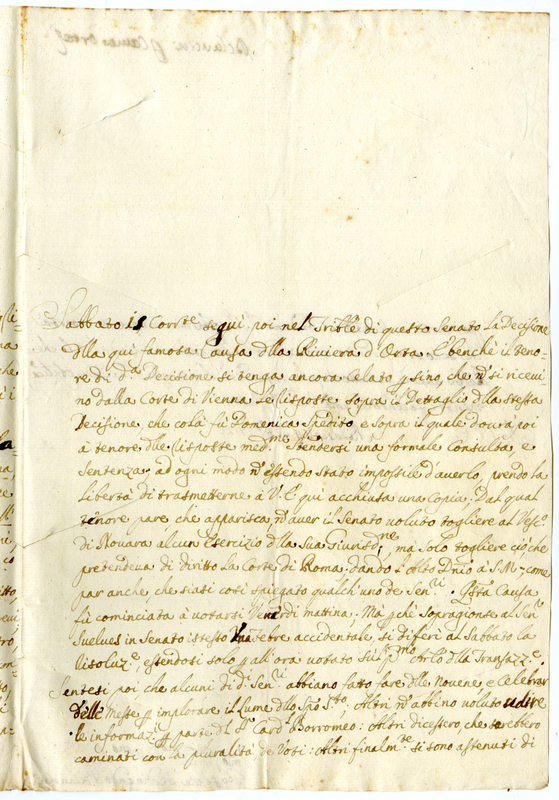 Sabbato 15 Corr.te seguì poi nel Trib.le di questo Senato La Decisione
dlla qui famosa Causa dlla Riviera d'Orta. E benchè il teno-
re di d.a Decisione si tenga ancora Celato p sino, che ñ si ricevi
no dalla Corte di Vienna Le Risposte sopra il Dettaglio dlla stessa
Decisione, che colà fù Domenica Spedito e sopra il quale dourà poi
à tenore dlle Risposte med.me Stendersi una formale Consulta, e
Sentenza; ad ogni modo ñ essendo stato impossibile d'averlo, prendo la
Libertà di trasmetterne à V.E. qui acchiusa una Copia. Dal qual
tenore pare che apparisca ñ aver il Senato uoluto togliere al Vesc.o
di Nouara alcun Esercizio dlla Sua Giurisd.ne, mà Solo togliere ciò che
pretendeua di diritto La Corte di Roma, dando l'Alto Dñio à S.M., come
par anche, che siasi così spiegato qualch'uno de Sen.ri. Qsta Causa
fù cominciata à uotarsi Venerdì mattina; Mà pchè Sopragionse al Sen.
Suelues in Senato istesso una febre accidentale, si diferì al Sabbato la
Risoluz.e, essendosi solo p all'ora uotato Sù'l p.mo Artlo dlla Transazz.e
Sentesi poi che alcuni di d.i Sen.ri abbiano fatto fare dlle Novene, e Celebrar
delle Messe p implorare il Lume dllo Spõ S.to, Altri ñ abbino uoluto udire
le informaz.i p parte dl S.r Card.l Borromeo: Altri dicessero, che sarebbero
caminati con la pluralità de Voti: Altri finalm.te si sono astenuti di